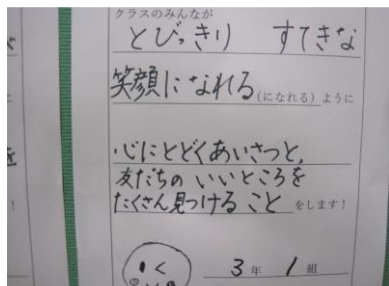 クラスのみんなが
とびっきり すてきな
笑顔になれる(になれる)ように
心にとどくあいさつと、
友だちの いいところを
たくさん見つける ことをします!
3年 1組